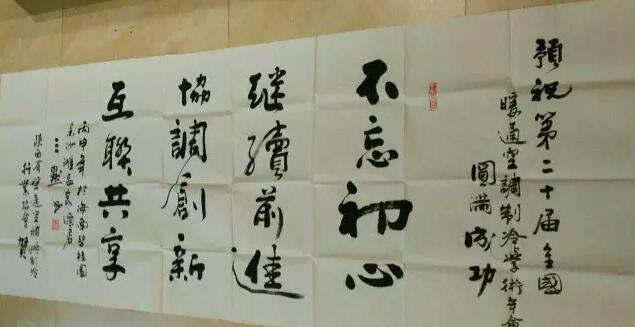 預祝第二十届全國
暖通空調制冷學術年會
圓滿成功
不忘初心
继續前進
協調創新
互聯共享
丙申年於海南碧桂園
陕西省暖通空调制冷
行業協會 賀